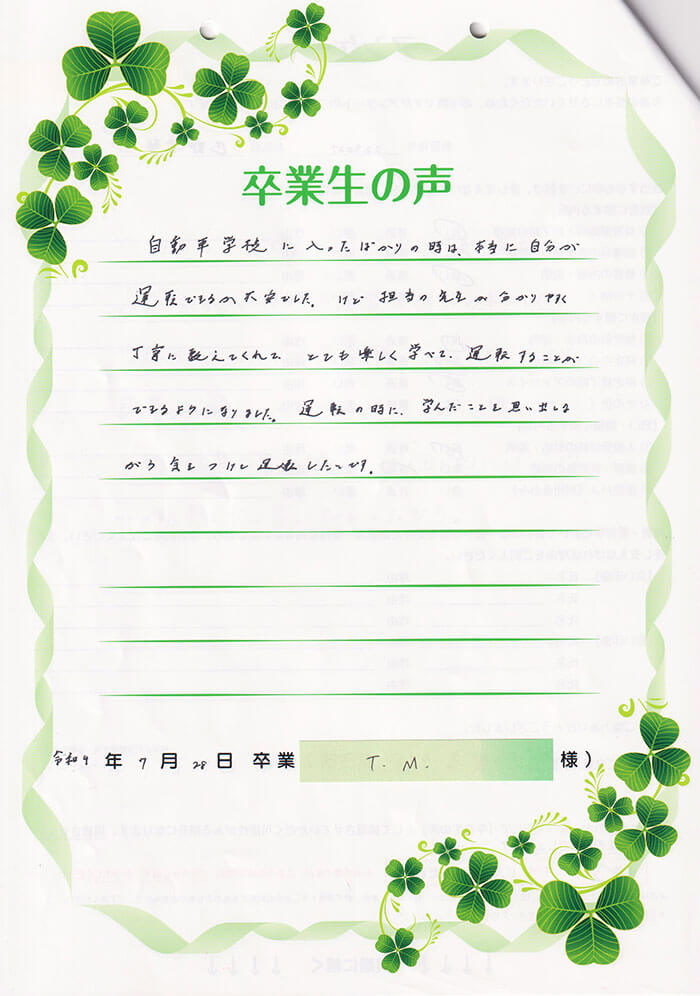 卒業生の声
自動車学校に入ったばかりの時は、本当に自分が
運転できるか不安でした。けど担当の先生が分かりやすく
丁寧に教えてくれて、とても楽しく学べて、運転することが
できるようになりました。運転の時に、学んだことを思い出しな
がら気をつけて運転したいです。
令和4年7月28日 卒業 T. M. 様)